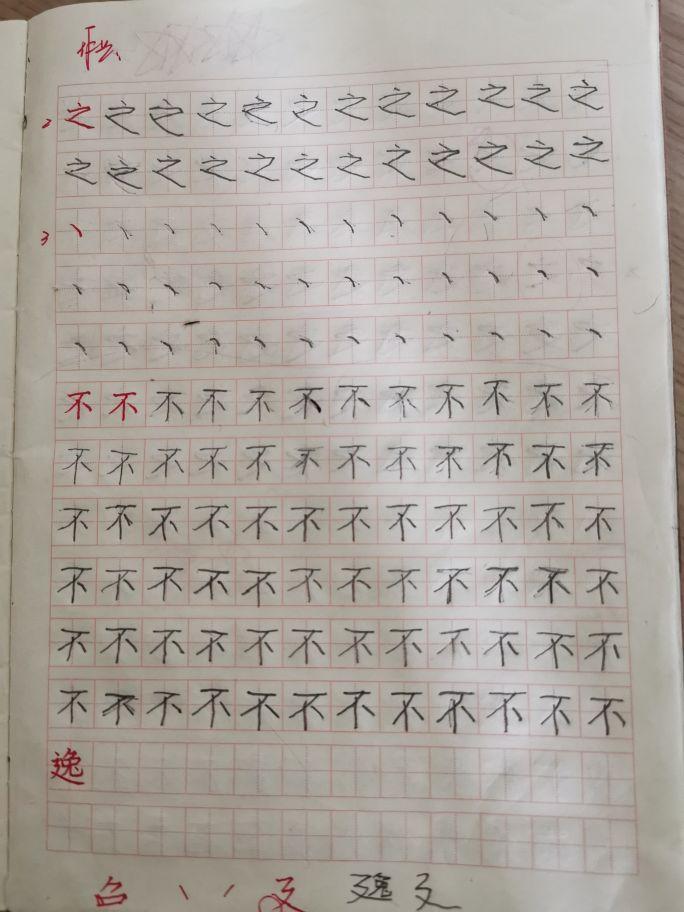 作业
2 之之之之之之之之之之之之
之之之之之之之之之之之之
3 丶丶丶丶丶丶丶丶丶丶丶丶
丶丶丶丶丶丶丶丶丶丶丶丶
丶丶丶丶丶丶丶丶丶丶丶丶
不不不不不不不不不不不不
不不不不不不不不不不不不
不不不不不不不不不不不不
不不不不不不不不不不不不
不不不不不不不不不不不不
不不不不不不不不不不不不
逸